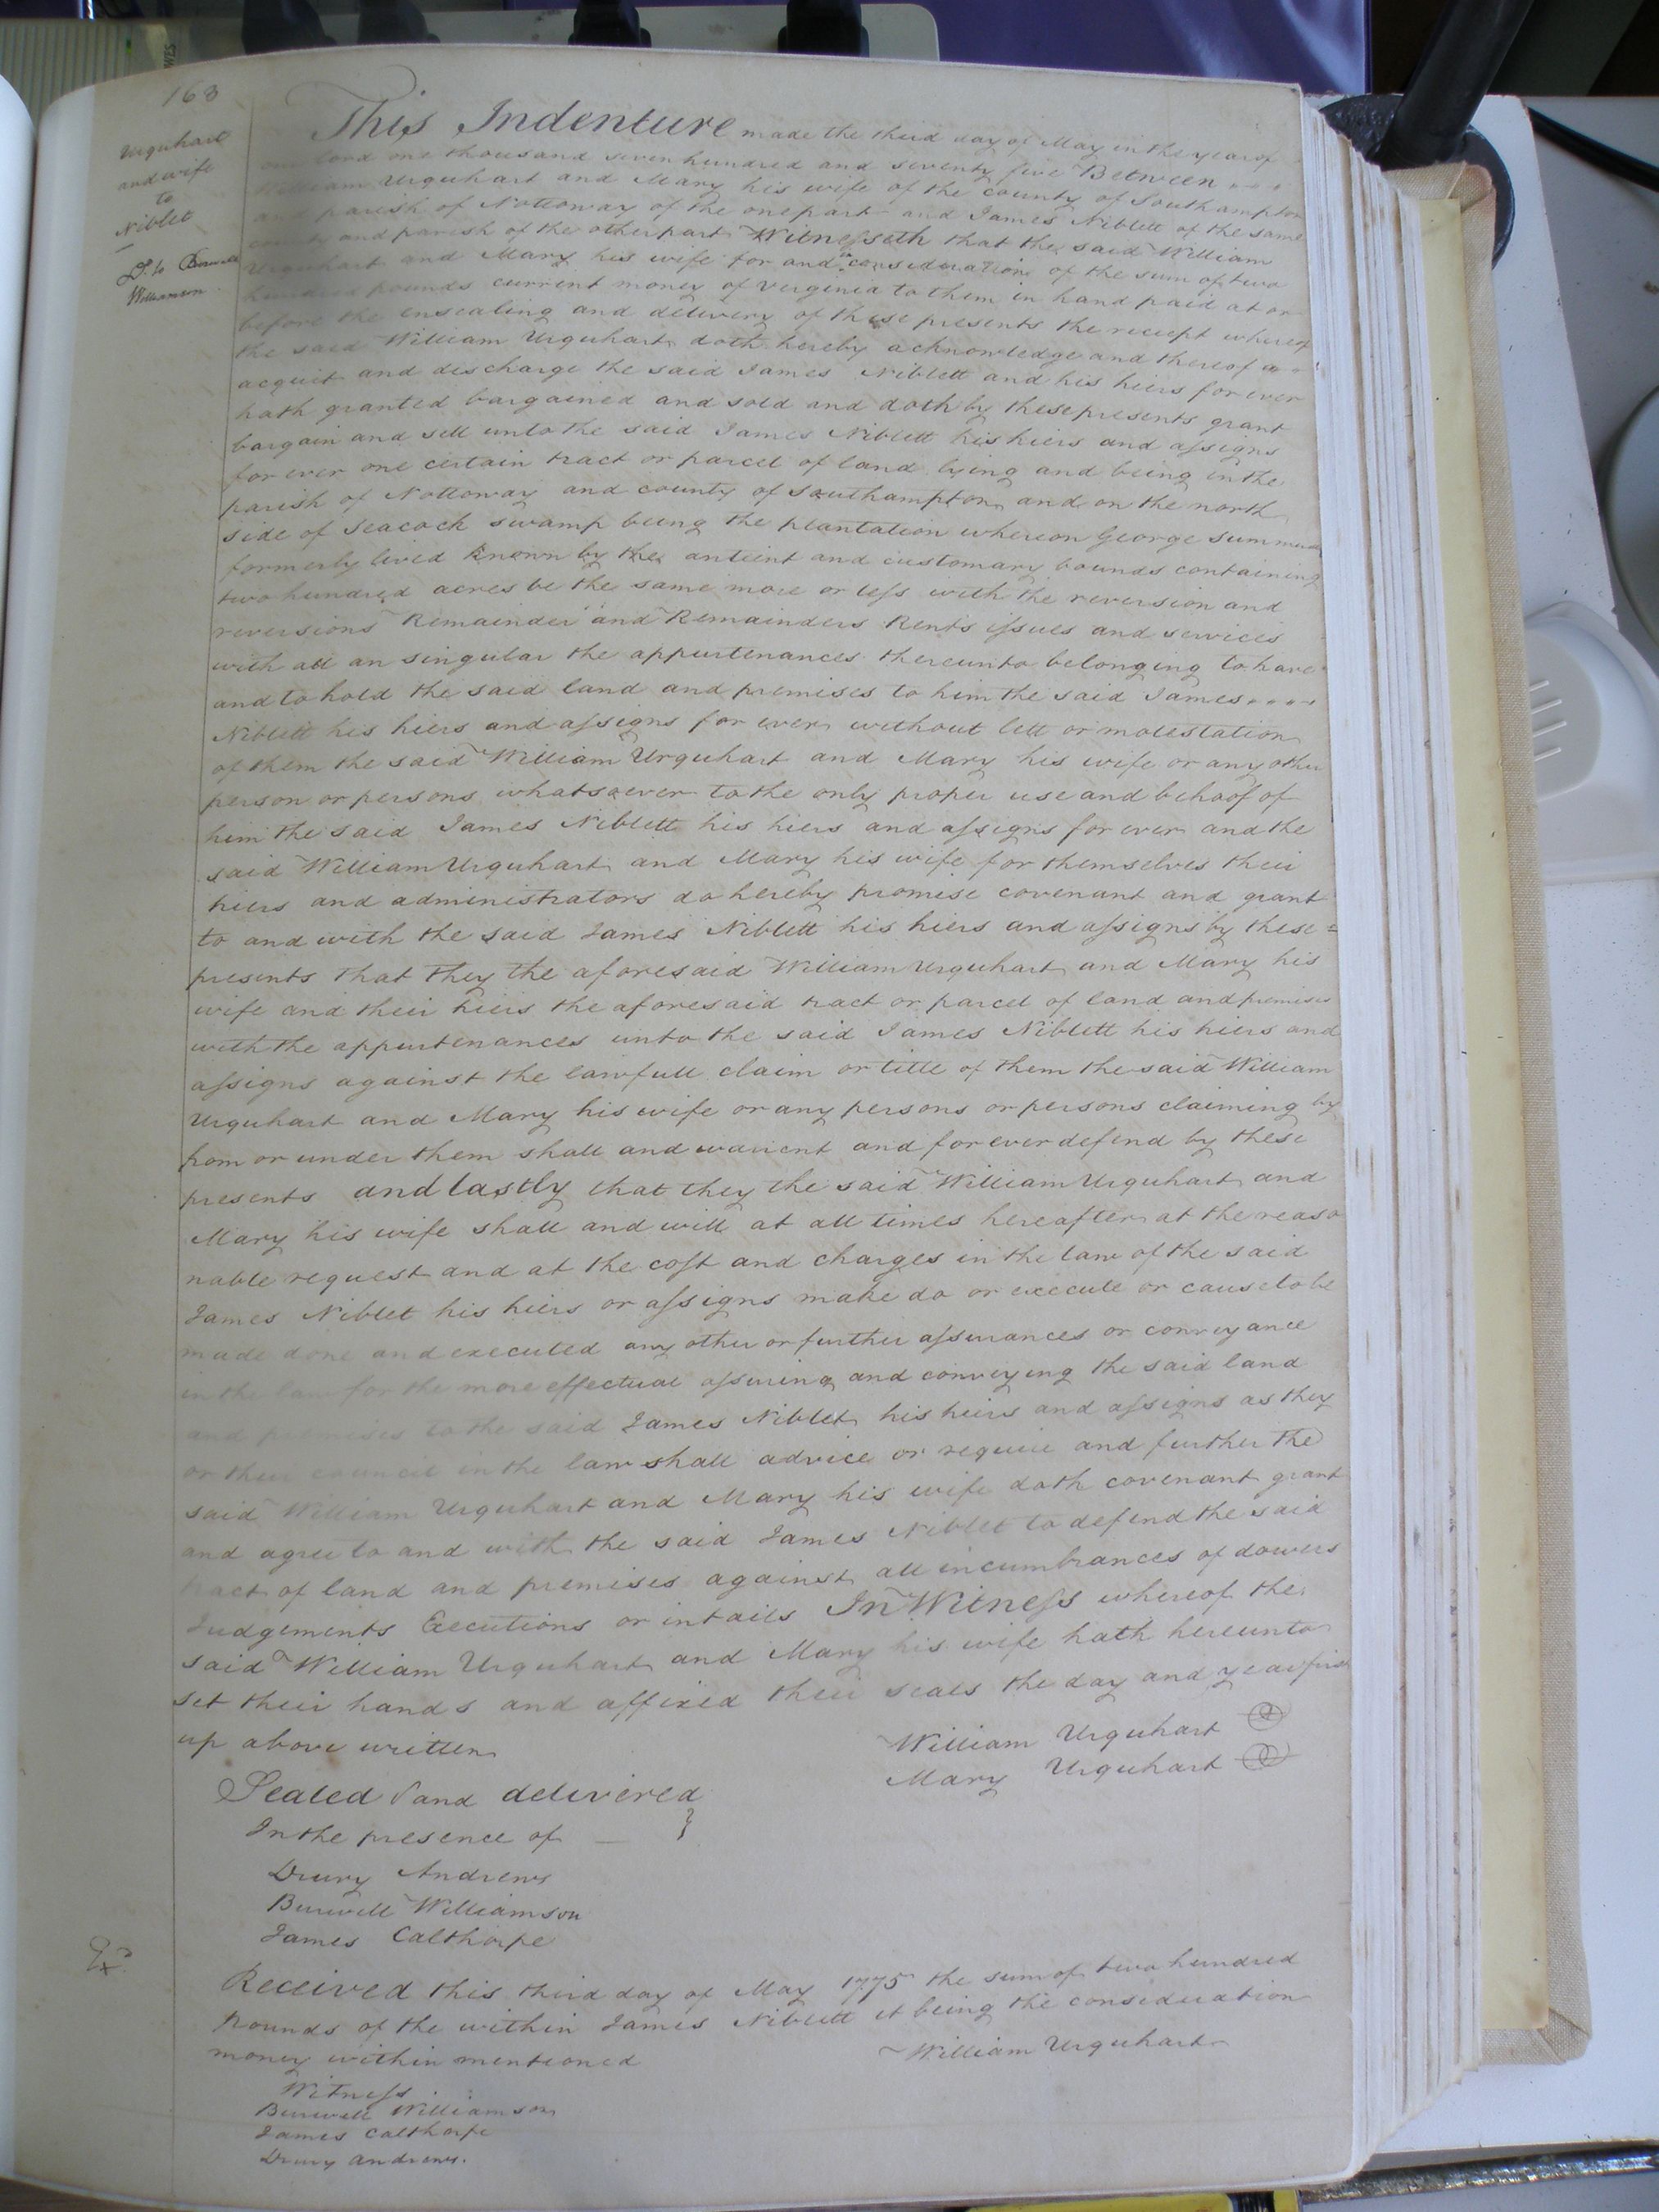 168
Urquhart
and wife
to
Niblet
D.d to Burwell
Williamson
This Indenture made the third day of May in the year of
our lord one thousand seven hundred and seventy five Between
William Urquhart and Mary his wife of the county of Southampton
and parish of Nottoway of the one part and James Niblett of the same
county and parish of the other part Witnesseth that the said William
Urquhart and Mary his wife for and in consideration of the sum of two
hundred pounds current money of Verginia to them in hand paid at or
before the ensealing and delivery of these presents the reciept whereof
the said William Urquhart doth hereby acknowledge and thereof
acquit and discharge the said James Niblett and his hiers for ever
hath granted bargained and sold and doth by these presents grant
bargain and sell unto the said James Niblett his hiers and assigns
for ever one certain tract or parcel of land lying and being in the
parish of Nottoway and county of Southampton and on the north
side of Seacock swamp being the plantation whereon George Summer
formerly lived known by the antient and customary bounds containing
two hundred acres be the same more or less with the reversion and
reversions Remainder and Remainders Rents issues and services
with all an singular the appurtenances thereunto belonging to have
and to hold the said land and premises to him the said James
Niblett his hiers and assigns for ever without lett or molestation
of them the said William Urquhart and Mary his wife or any other
person or persons whatsoever to the only proper use and behoof of
him the said James Niblett his hiers and assigns for ever and the
said William Urquhart and Mary his wife for themselves their
hiers and administrators do hereby promise covenant and grant
to and with the said James Niblett his hiers and assigns by these =
presents that they the aforesaid William Urquhart and Mary his
wife and their hiers the aforesaid tract or parcel of land and premises
with the appurtenances unto the said James Niblett his hiers and
assigns against the lawfull claim or title of them the said William
Urquhart and Mary his wife or any persons or persons claiming by
from or under them shall and warrent and for ever defend by these
presents and lastly that they the said William Urquhart and
Mary his wife shall and will at all times hereafter at the reaso
nable request and at the cost and charges in the law of the said
James Niblet his hiers or assigns make do or execute or cause to be
made done and executed any other or further assurances or conveyance
in the law for the more effectual assuring and conveying the said land
and premises to the said James Niblet his heirs and assigns as they
or their council in the law shall advice or require and further the
said William Urquhart and Mary his wife doth covenant grant
and agree to and with the said James Niblet to defend the said
tract of land and premises against all incumbrances of dowers
Judgements Executions or intails In Witness whereof the
said William Urquhart and Mary his wife hath hereunto
set their hands and affixed their seals the day and year first
up above written
William Urquhart
Mary Urquhart
Sealed and delivered
In the presence of
Drury Andrews
Burwell Williamson
James Calthorpe
Ex.d
Received this third day of May 1775 the sum of two hundred
pounds of the within James Niblett it being the consideration
money within mentioned
William Urquhart
Witness
Burwell Williamson
James Calthorpe
Drury Andrews.